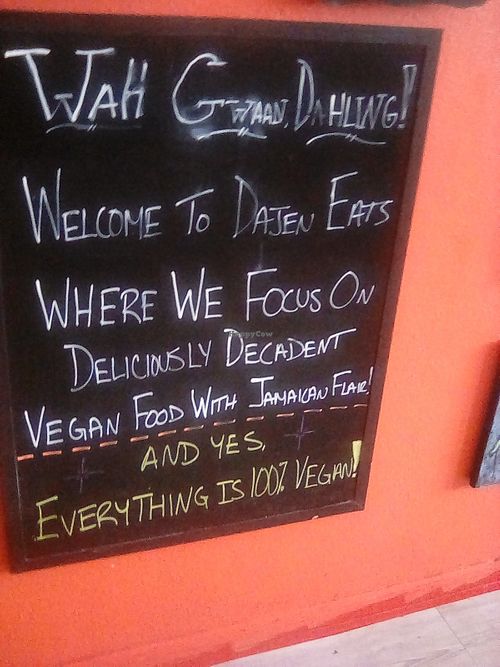 Wah Gwaan, Dahling!
Welcome To Dajen Eats
Where We Focus On
HappyCow
Deliciously Decadent
Vegan Food With Jamaican Flair!
And Yes,
Everything Is 100% Vegan!